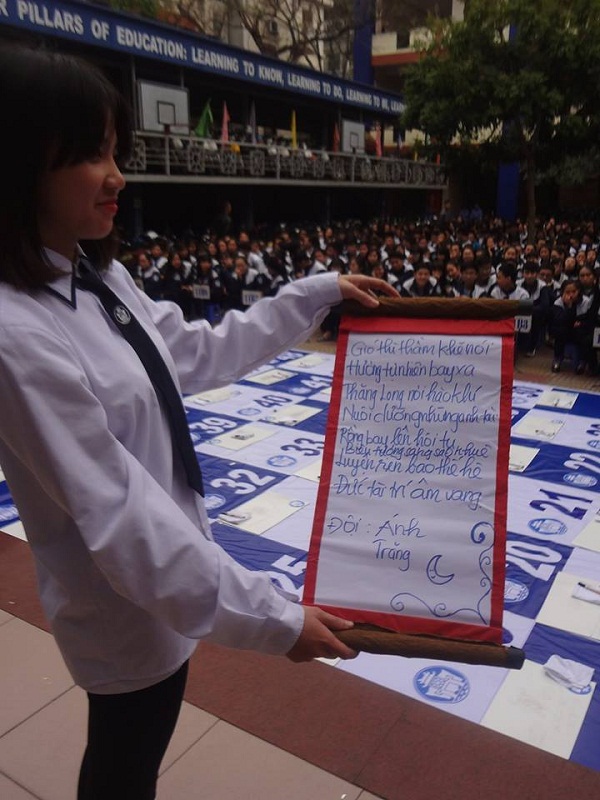 R PILLARS OF EDUCATION: LEARNING TO KNOW, LEARNING TO DO, LEARNING TO BE, LEAR
Gió thì thầm khẽ nói
Hương tự nhiên bay xa
Thăng Long nơi hào khí
Nuôi dưỡng những anh tài
Rồng bay lên hội tụ
Biểu tượng sáng sao khuê
Luyện rèn bao thế hệ
Đức tài trí âm vang
ĐỘI : Ánh
Trăng
40
39
33
32
25
20
21
22
23